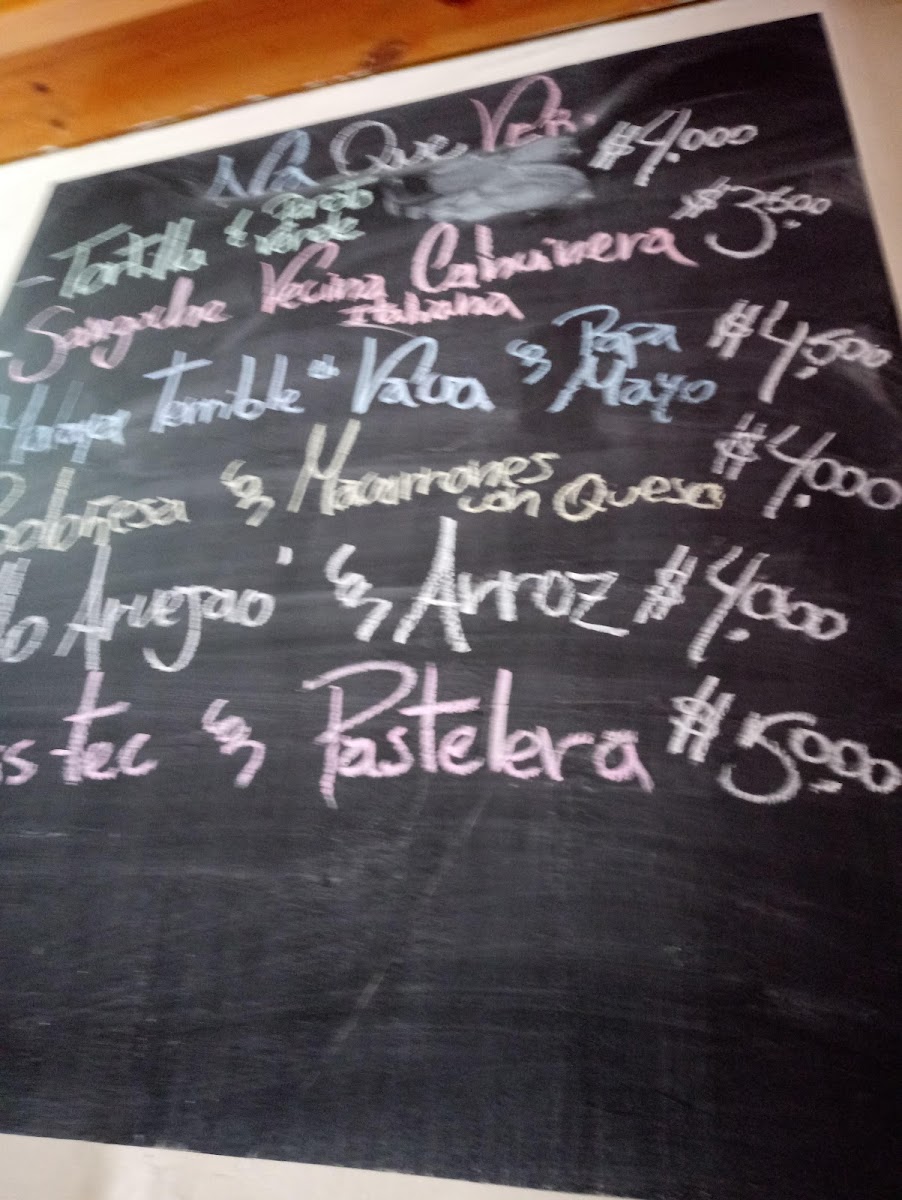 Na Que Ver.
- Tortilla & Poroto Verde $4.000
- Sanguche Vecina Cahuinera Italiana $3.500
Terrible" Vaca & Papa Mayo $4.500
Boloñesa & Macarrones con Quesa $4.000
Arvejao' & Arroz $4.000
s-tec & Pastelera $5.000